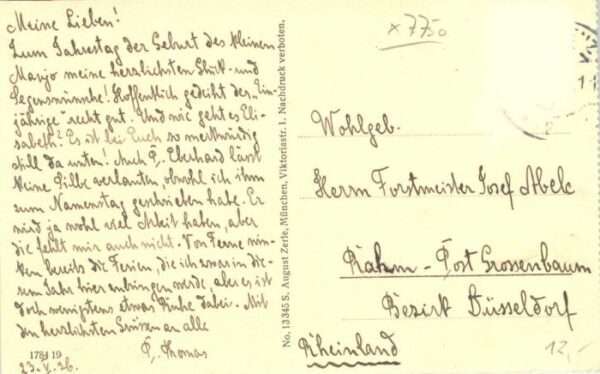 Meine Lieben!
Zum Jahrestag der Geburt des kleinen
Marjo meine herzlichsten Glück- und
Segenswünsche! Hoffentlich gedeiht des "Ein-
jährige" recht gut. Und wie geht es Eli-
sabeth? Es ist bei Euch so merkwürdig
still da unten! Auch P. Eberhard lässt
keine Silbe verlauten, obwohl ich ihm
zum Namenstag geschrieben habe. Er
wird ja wohl viel Arbeit haben, aber
die fehlt mir auch nicht. Von Ferne win-
ken bereits die Ferien, die ich zwar in die-
sem Jahr hier zubringen werde, aber es ist
doch wenigstens etwas Ruhe dabei. - Mit
den herzlichsten Grüssen an alle
P. Thomas
1784 19
23. V. 26.
No. 13345 S. August Zerle, München, Viktoriastr. 1. Nachdruck verboten.
x 7750
Wohlgeb.
Herrn Forstmeister Josef Abele
Rahm - Post Grossenbaum
Bezirk Düsseldorf
Rheinland
12,-